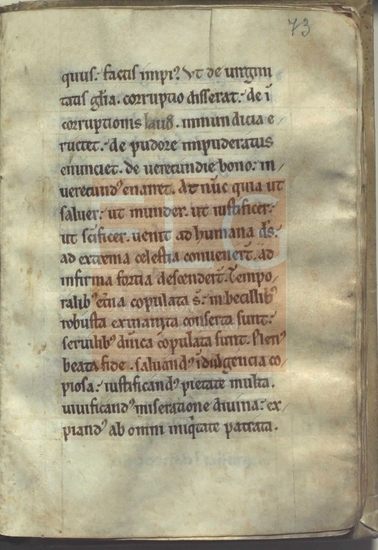 73
quus. factis impi? Vt de uirgini
tatis gl̃ia. corruptio disserat. de ĩ
corruptionis laud̃. inmundicia e
ructet. de pudore impuderatus
enunciet. de uerecundie bono. in/
uerecundꝰ enarret. At nũc quia ut
saluer. ut munder. ut iustificer.
ut sc̃ificer. uenit ad humana d̃s.
ad extrema celestia conuenerũt. ad
infirma fortia descenderũt. Tempo/
ralibꝫ et̃na copulata s̃. inbecillibꝫ
robusta exinanita conserta sunt.
seruilibꝫ diuina copulata sunt.
beata fide. saluandꝰ indulgencia co
piosa. iustificandꝰ pietate multa.
uiuificandꝰ miseratione diuina. ex/
piandꝰ ab omni iniq̃tate patrata.